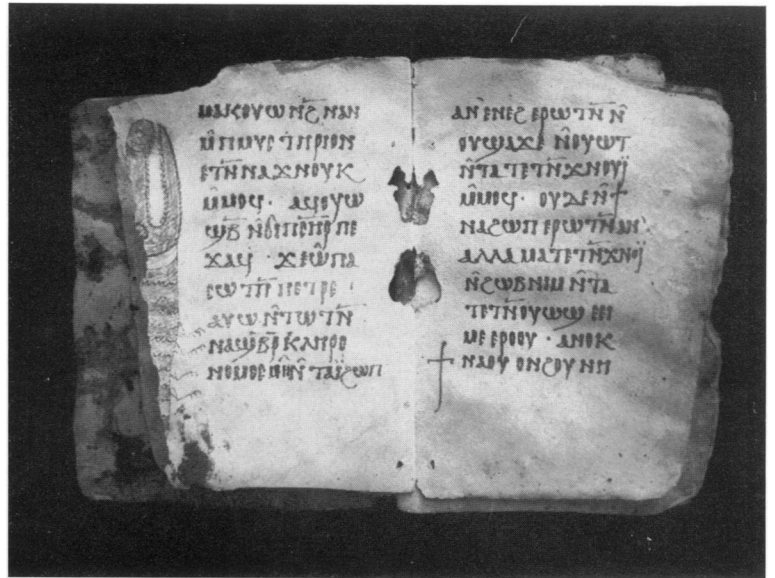 ϣⲁⲕⲟⲩⲱⲛϩ̄ ⲛⲁⲛ
ⲙ̄ⲡⲙⲩⲥⲧⲏⲣⲓⲟⲛ
ⲉⲧⲛ̄ⲛⲁϫⲛⲟⲩⲕ
ⲙ̄ⲙⲟϥ· ⲁϥⲟⲩⲱ
ϣⲃ̄ ⲛ̄ϭⲓⲡⲉⲛ̄ⲣⲡⲉ
ϫⲁϥ · ϫⲉⲱ̂ⲡⲁ
ⲥⲱⲧⲡ̄ ⲡⲉⲧⲣⲉ ·
ⲁⲩⲱ ⲛ̄ⲧⲱⲧⲛ̄
ⲛⲁϣⲃ̄ⲣ̄ⲕⲗⲏⲣⲟ
ⲛⲟⲙⲟⲥ ⲧⲁⲓ̈ϩⲱⲡ
ⲁⲛ ⲉⲛⲉϩ ⲉⲣⲱⲧⲛ̄ ⲛ̄
ⲟⲩϣⲁϫⲉ ⲛ̄ⲟⲩⲱⲧ
ⲛ̄ⲧⲁⲧⲉⲧⲛ̄ϫⲛⲟⲩⲓ̈
ⲙ̄ⲙⲟϥ· ⲟⲩⲇⲉ ⲛ̄ϯ
ⲛⲁϩⲱⲡ ⲉⲣⲱⲧⲛ̄ ⲁⲛ·
ⲁⲗⲗⲁ ⲙⲁⲧⲉⲧⲛ̄ϫⲛⲟⲓ̈
ⲛ̄ϩⲱⲃ ⲛⲓⲙ ⲛ̄ⲧⲁ
ⲧⲉⲧⲛ̄ⲟⲩⲱϣ ⲉⲓ
ⲙⲉ ⲉⲣⲟⲟⲩ · ⲁⲛⲟⲕ
ϯⲛⲁⲟⲩⲟⲛϩⲟⲩ ⲛⲏ